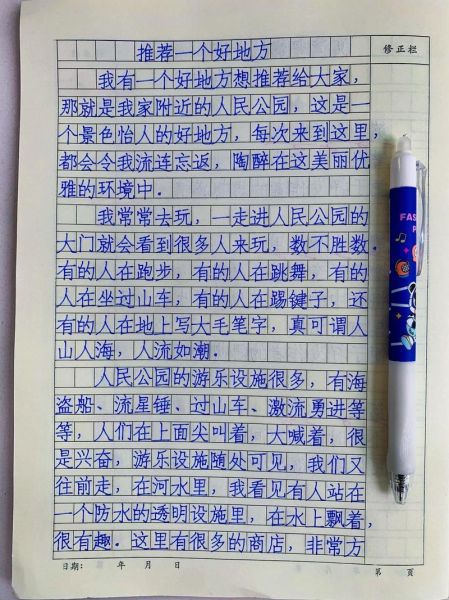 推荐一个好地方
修正栏
我有一个好地方想推荐给大家，
那就是我家附近的人民公园，这是一
个景色怡人的好地方，每次来到这里，
都会令我流连忘返，陶醉在这美丽优
雅的环境中．
我常常去玩，一走进人民公园的
大门就会看到很多人来玩，数不胜数．
有的人在跑步，有的人在跳舞，有的
人在坐过山车，有的人在踢键子，还
有的人在地上写大毛笔字，真可谓人
山人海，人流如潮．
人民公园的游乐设施很多，有海
盗船、流星锤、过山车、激流勇进等
等，人们在上面尖叫着，大喊着，很
是兴奋，游乐设施随处可见，我们又
往前走，在河水里，我看见有人站在
一个防水的透明设施里，在水上飘着，
很有趣．这里有很多的商店，非常方
日期： 年 月 日
第 页
FAS
P